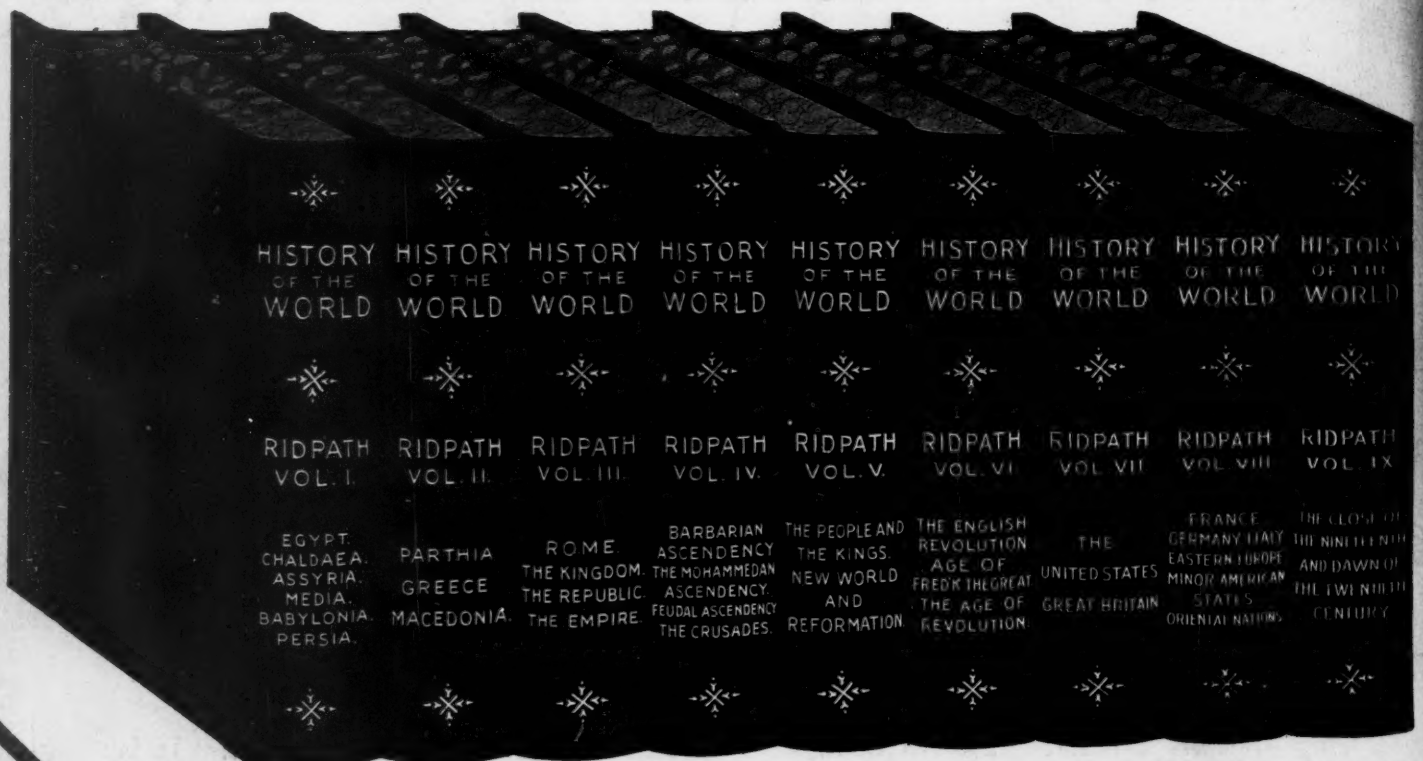 HISTORY
OF THE
WORLD
RIDPATH
VOL. I.
EGYPT.
CHALDAEA.
ASSYRIA.
MEDIA.
BABYLONIA.
PERSIA.
HISTORY
OF THE
WORLD
RIDPATH
VOL. II.
PARTHIA
GREECE
MACEDONIA.
HISTORY
OF THE
WORLD
RIDPATH
VOL. III.
ROME.
THE KINGDOM.
THE REPUBLIC.
THE EMPIRE.
HISTORY
OF THE
WORLD
RIDPATH
VOL. IV.
BARBARIAN
ASCENDENCY
THE MOHAMMEDAN
ASCENDENCY.
FEUDAL ASCENDENCY
THE CRUSADES.
HISTORY
OF THE
WORLD
RIDPATH
VOL. V.
THE PEOPLE AND
THE KINGS.
NEW WORLD
AND
REFORMATION
HISTORY
OF THE
WORLD
RIDPATH
VOL. VI
THE ENGLISH
REVOLUTION
AGE OF
FRED'K THE GREAT
THE AGE OF
REVOLUTION.
HISTORY
OF THE
WORLD
RIDPATH
VOL. VII
THE
UNITED STATES
GREAT BRITAIN
HISTORY
OF THE
WORLD
RIDPATH
VOL. VIII
FRANCE
GERMANY ITALY
EASTERN EUROPE
MINOR AMERICAN
STATES
ORIENTAL NATIONS
HISTORY
OF THE
WORLD
RIDPATH
VOL. IX
THE CLOSE OF
THE NINETEENTH
AND DAWN OF
THE TWENTIETH
CENTURY